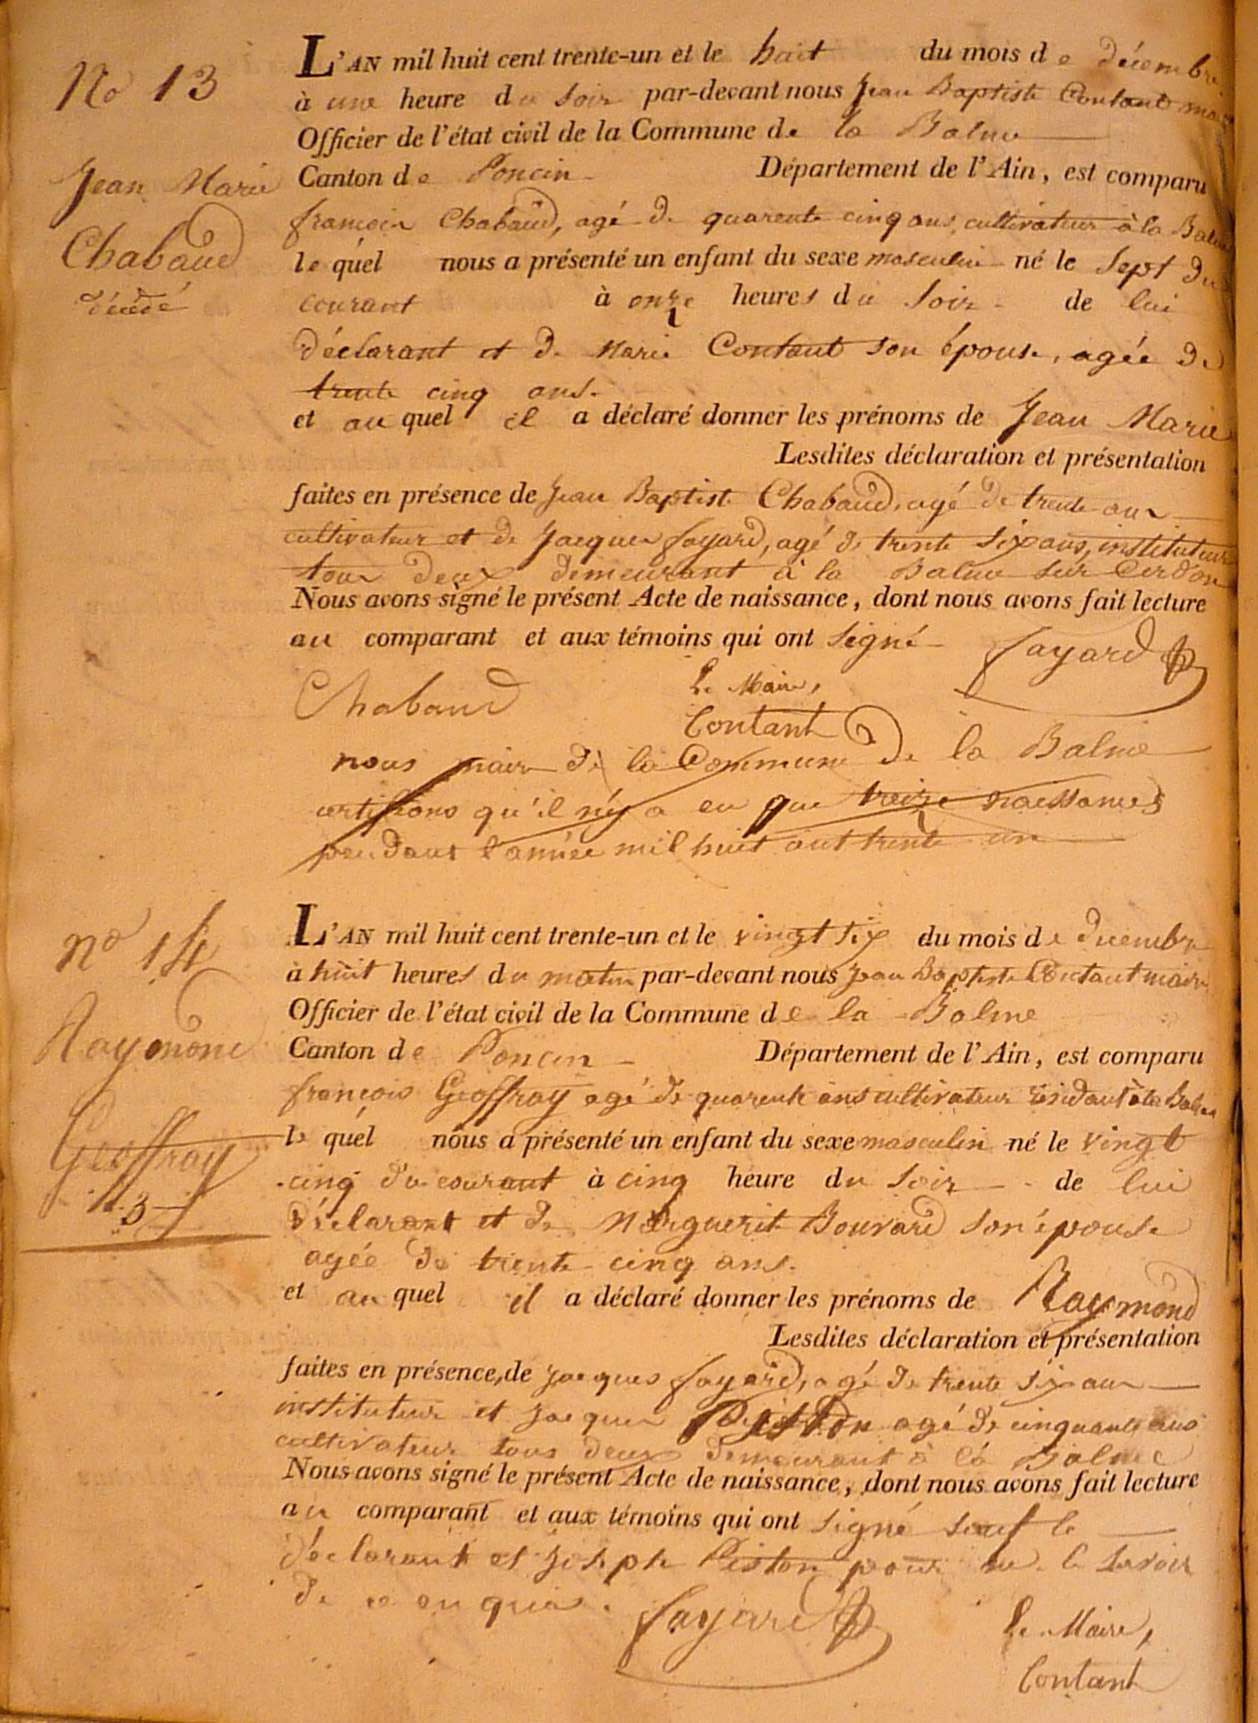 No 13
Jean Marie
Chabaud
décédé
L'AN mil huit cent trente-un et le huit du mois de décembre
à une heure du soir par-devant nous Jean Baptiste Contant maire
Officier de l'état civil de la Commune de la Balme
Canton de Poncin Département de l'Ain, est comparu
françois Chabaud, agé de quarente cinq ans, cultivateur à la Balme
lequel nous a présenté un enfant du sexe masculin né le sept du
courant à onze heures du soir de lui
déclarant et de Marie Contant son épouse, agée de
trente cinq ans.
et au quel il a déclaré donner les prénoms de Jean Marie
Lesdites déclaration et présentation
faites en présence de Jean Baptiste Chabaud, agé de trente ans
cultivateur et de Jacques fayard, agé de trente six ans, instituteur
tous deux demeurant à la Balme sur Cerdon
Nous avons signé le présent Acte de naissance, dont nous avons fait lecture
au comparant et aux témoins qui ont signé
fayard
Chabaud Le Maire,
Contant
nous maire de la Commune de la Balme
certifions qu'il n'y a eu que treize naissances
pendant l'année mil huit cent trente un
no 14
Raymond
Geoffray
13
L'AN mil huit cent trente-un et le vingt six du mois de decembre
à huit heures du matin par-devant nous jean Baptiste Contant maire
Officier de l'état civil de la Commune de la Balme
Canton de Poncin Département de l'Ain, est comparu
françois Geoffray agé de quarente ans cultivateur résidant à la Balme
le quel nous a présenté un enfant du sexe masculin né le vingt
cinq du courant à cinq heure du soir de lui
déclarant et de Marguerite Bouvard son épouse
agée de trente cinq ans.
et au quel il a déclaré donner les prénoms de Raymond
Lesdites déclaration et présentation
faites en présence, de jacques fayard, agé de trente six ans
instituteur et jacques Piston agé de cinquante ans
cultivateur tous deux demeurant à la Balme
Nous avons signé le présent Acte de naissance, dont nous avons fait lecture
au comparant et aux témoins qui ont signé sauf le
déclarant et joseph Piston pour ne le savoir
de ce enquis. fayard Le Maire,
Contant